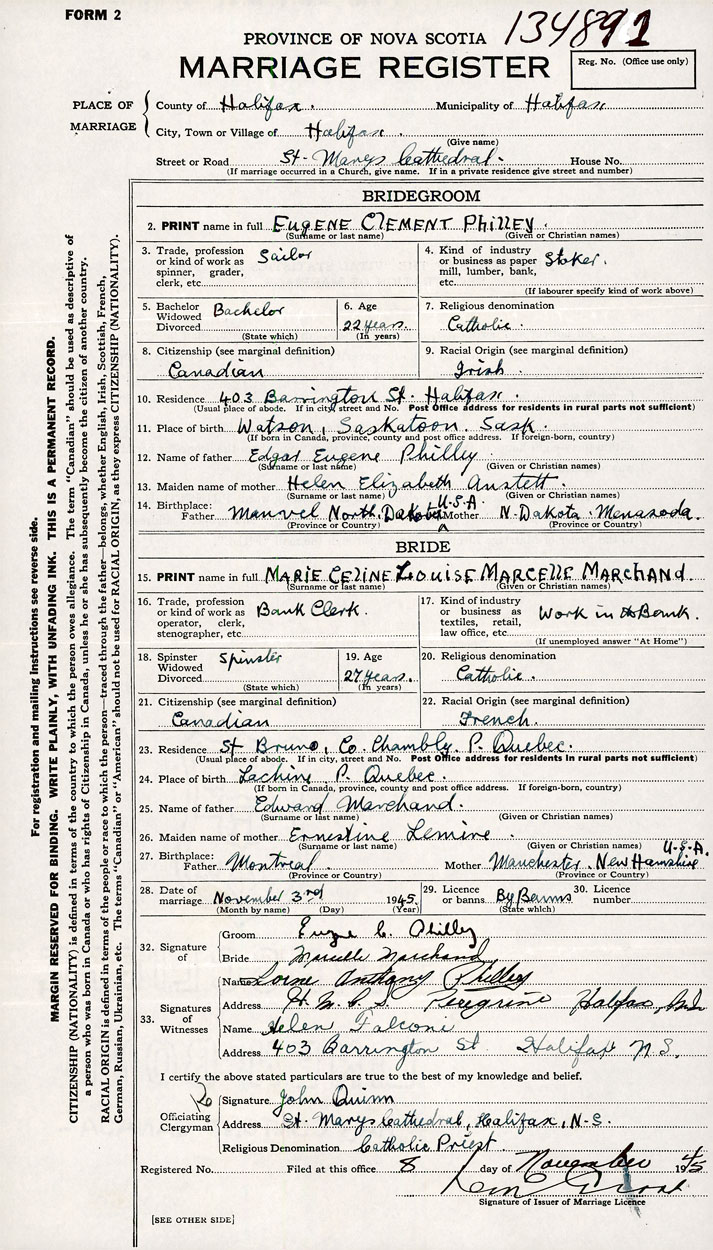 FORM 2
134891
PROVINCE OF NOVA SCOTIA
MARRIAGE REGISTER
Reg. No. (Office use only)
PLACE OF MARRIAGE
County of Halifax. Municipality of Halifax
City, Town or Village of Halifax.
(Give name)
Street or Road St. Marys Cathedral. House No.
(If marriage occurred in a Church, give name. If in a private residence give street and number)
BRIDEGROOM
2. PRINT name in full EUGENE CLEMENT PHILLEY.
(Surname or last name) (Given or Christian names)
3. Trade, profession or kind of work as spinner, grader, clerk, etc. Sailor
4. Kind of industry or business as paper mill, lumber, bank, etc. Stoker.
(If labourer specify kind of work above)
5. Bachelor Widowed Divorced Bachelor
(State which)
6. Age 22 years.
(In years)
7. Religious denomination
Catholic.
8. Citizenship (see marginal definition)
Canadian
9. Racial Origin (see marginal definition)
Irish.
10. Residence 403 Barrington St. Halifax.
(Usual place of abode. If in city, street and No. Post Office address for residents in rural parts not sufficient)
11. Place of birth Watson, Saskatoon. Sask.
(If born in Canada, province, county and post office address. If foreign-born, country)
12. Name of father Edgar Eugene Philley
(Surname or last name) (Given or Christian names)
13. Maiden name of mother Helen Elizabeth Anstett.
(Surname or last name) (Given or Christian names)
14. Birthplace: Father Manvel North Dakota U.S.A. Mother N. Dakota. Menasoda.
(Province or Country) (Province or Country)
BRIDE
15. PRINT name in full MARIE CELINE LOUISE MARCELLE MARCHAND.
(Surname or last name) (Given or Christian names)
16. Trade, profession or kind of work as operator, clerk, stenographer, etc. Bank Clerk.
17. Kind of industry or business as textiles, retail, law office, etc. Work in Bank.
(If unemployed answer "At Home")
18. Spinster Widowed Divorced Spinster
(State which)
19. Age 27 years.
(In years)
20. Religious denomination
Catholic.
21. Citizenship (see marginal definition)
Canadian
22. Racial Origin (see marginal definition)
French.
23. Residence St Bruno, Co. Chambly. P. Quebec.
(Usual place of abode. If in city, street and No. Post Office address for residents in rural parts not sufficient)
24. Place of birth Lachine P. Quebec.
(If born in Canada, province, county and post office address. If foreign-born, country)
25. Name of father Edward Marchand.
(Surname or last name) (Given or Christian names)
26. Maiden name of mother Ernestine Lemire.
(Surname or last name) (Given or Christian names)
27. Birthplace: Father Montreal. Mother Manchester. New Hamshire U.S.A.
(Province or Country) (Province or Country)
28. Date of marriage November 3rd 1945
(Month by name) (Day) (Year)
29. Licence or banns By Banns
(State which)
30. Licence number
32. Signature of
Groom Eugene C. Philley
Bride Marcelle Marchand
33. Signatures of Witnesses
Name Lorne Anthony Philley
Address H.M.C.S. Peregrine Halifax, N.S.
Name Helen Falconi
Address 403 Barrington St Halifax N.S.
I certify the above stated particulars are true to the best of my knowledge and belief.
Officiating Clergyman
Signature John Quinn
Address St. Marys Cathedral, Halifax, N.S.
Religious Denomination Catholic Priest.
Registered No. Filed at this office 8 day of November 1945
Signature of Issuer of Marriage Licence
[SEE OTHER SIDE]
For registration and mailing instructions see reverse side.
MARGIN RESERVED FOR BINDING. WRITE PLAINLY, WITH UNFADING INK. THIS IS A PERMANENT RECORD.
CITIZENSHIP (NATIONALITY) is defined in terms of the country to which the person owes allegiance. The term "Canadian" should be used as descriptive of
a person who was born in Canada or who has rights of Citizenship in Canada, unless he or she has subsequently become the citizen of another country.
RACIAL ORIGIN is defined in terms of the people or race to which the person—traced through the father—belongs, whether English, Irish, Scottish, French,
German, Russian, Ukrainian, etc. The terms "Canadian" or "American" should not be used for RACIAL ORIGIN, as they express CITIZENSHIP (NATIONALITY).